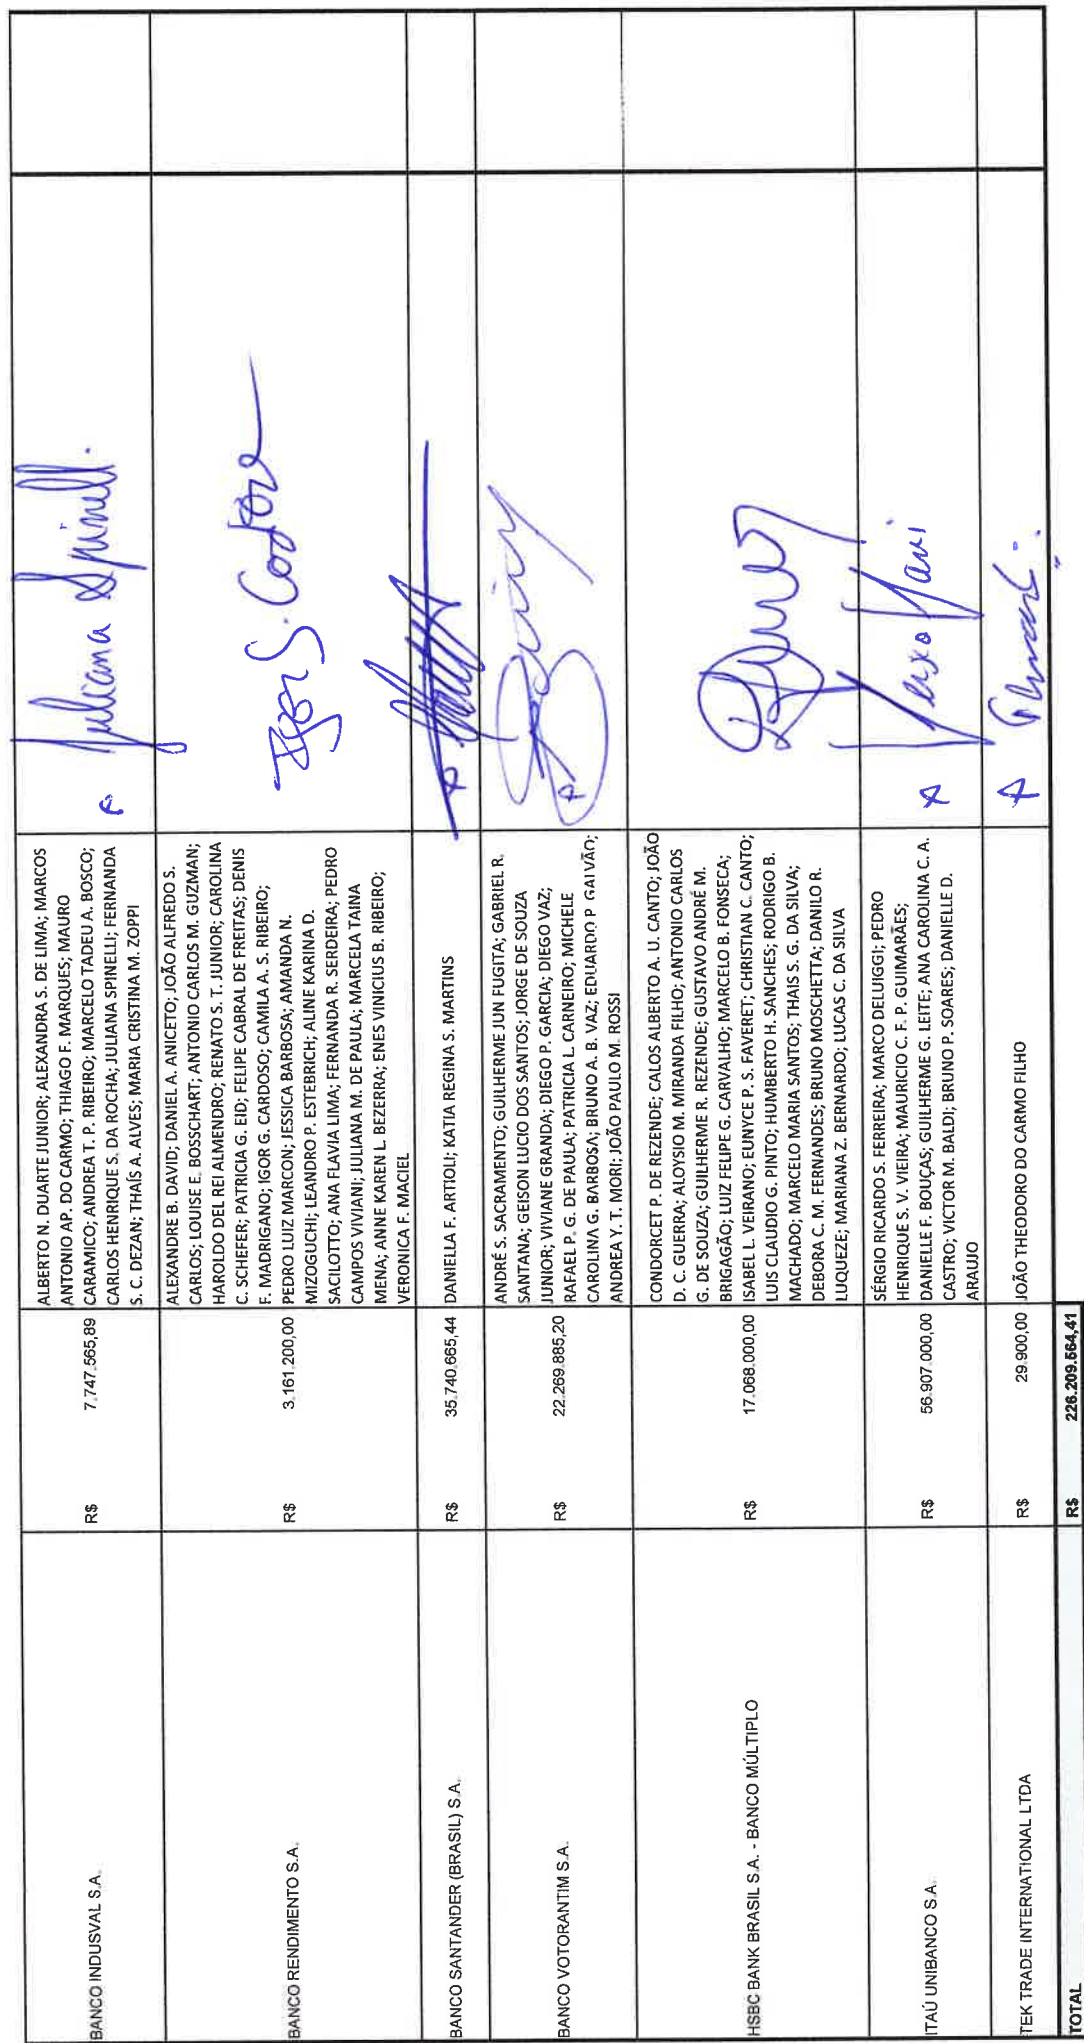 BANCO INDUSVAL S.A.
R$ 7.747.565,89
ALBERTO N. DUARTE JUNIOR; ALEXANDRA S. DE LIMA; MARCOS
ANTONIO AP. DO CARMO; THIAGO F. MARQUES; MAURO
CARAMICO; ANDREA T. P. RIBEIRO; MARCELO TADEU A. BOSCO;
CARLOS HENRIQUE S. DA ROCHA; JULIANA SPINELLI; FERNANDA
S. C. DEZAN; THAÍS A. ALVES; MARIA CRISTINA M. ZOPPI
Juliana Spinell.
BANCO RENDIMENTO S.A.
R$ 3.161.200,00
ALEXANDRE B. DAVID; DANIEL A. ANICETO; JOÃO ALFREDO S.
CARLOS; LOUISE E. BOSSCHART; ANTONIO CARLOS M. GUZMAN;
HAROLDO DEL REI ALMENDRO; RENATO S. T. JUNIOR; CAROLINA
C. SCHEFER; PATRICIA G. EID; FELIPE CABRAL DE FREITAS; DENIS
F. MADRIGANO; IGOR G. CARDOSO; CAMILA A. S. RIBEIRO;
PEDRO LUIZ MARCON; JESSICA BARBOSA; AMANDA N.
MIZOGUCHI; LEANDRO P. ESTEBRICH; ALINE KARINA D.
SACILOTTO; ANA FLAVIA LIMA; FERNANDA R. SERDEIRA; PEDRO
CAMPOS VIVIANI; JULIANA M. DE PAULA; MARCELA TAINA
MENA; ANNE KAREN L. BEZERRA; ENES VINICIUS B. RIBEIRO;
VERONICA F. MACIEL
BANCO SANTANDER (BRASIL) S.A.
R$ 35.740.665,44
DANIELLA F. ARTIOLI; KATIA REGINA S. MARTINS
BANCO VOTORANTIM S.A.
R$ 22.269.885,20
ANDRÉ S. SACRAMENTO; GUILHERME JUN FUGITA; GABRIEL R.
SANTANA; GEISON LUCIO DOS SANTOS; JORGE DE SOUZA
JUNIOR; VIVIANE GRANDA; DIEGO P. GARCIA; DIEGO VAZ;
RAFAEL P. G. DE PAULA; PATRICIA L. CARNEIRO; MICHELE
CAROLINA G. BARBOSA; BRUNO A. B. VAZ; EDUARDO P. GALVÃO;
ANDREA Y. T. MORI; JOÃO PAULO M. ROSSI
HSBC BANK BRASIL S.A. - BANCO MÚLTIPLO
R$ 17.068.000,00
CONDORCET P. DE REZENDE; CALOS ALBERTO A. U. CANTO; JOÃO
D. C. GUERRA; ALOYSIO M. MIRANDA FILHO; ANTONIO CARLOS
G. DE SOUZA; GUILHERME R. REZENDE; GUSTAVO ANDRÉ M.
BRIGAGÃO; LUIZ FELIPE G. CARVALHO; MARCELO B. FONSECA;
ISABEL L. VEIRANO; EUNYCE P. S. FAVERET; CHRISTIAN C. CANTO;
LUIS CLAUDIO G. PINTO; HUMBERTO H. SANCHES; RODRIGO B.
MACHADO; MARCELO MARIA SANTOS; THAIS S. G. DA SILVA;
DEBORA C. M. FERNANDES; BRUNO MOSCHETTA; DANILO R.
LUQUEZE; MARIANA Z. BERNARDO; LUCAS C. DA SILVA
ITAÚ UNIBANCO S.A.
R$ 56.907.000,00
SÉRGIO RICARDO S. FERREIRA; MARCO DELUIGGI; PEDRO
HENRIQUE S. V. VIEIRA; MAURICIO C. F. P. GUIMARÃES;
DANIELLE F. BOUÇAS; GUILHERME G. LEITE; ANA CAROLINA C. A.
CASTRO; VICTOR M. BALDI; BRUNO P. SOARES; DANIELLE D.
ARAUJO
TEK TRADE INTERNATIONAL LTDA
R$ 29.900,00
JOÃO THEODORO DO CARMO FILHO
TOTAL R$ 226.209.564,41